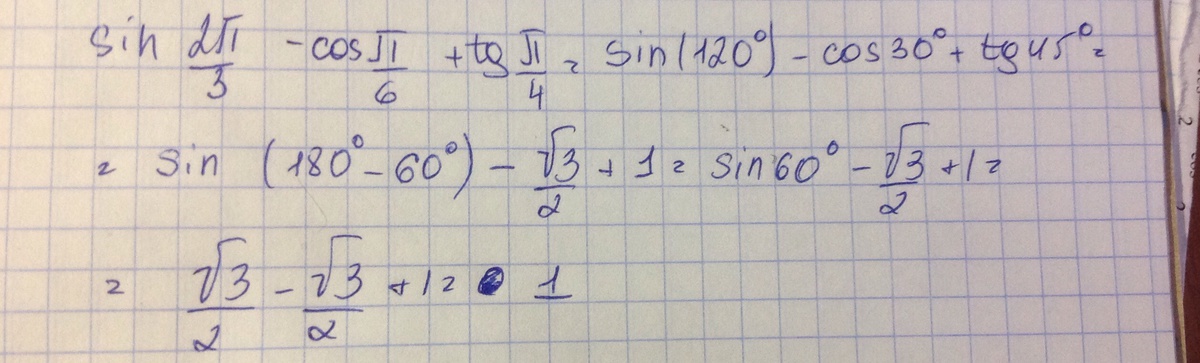 sin 2π/3 - cos π/6 + tg π/4 = sin(120°) - cos30° + tg45° =
= sin (180° - 60°) - √3/2 + 1 = sin60° - √3/2 + 1 =
= √3/2 - √3/2 + 1 = 1